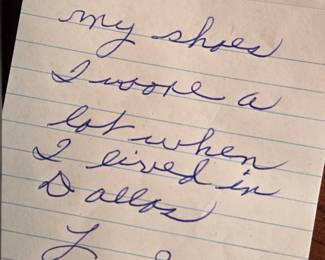 my shoes
I wore a
lot when
I lived in
Dallas